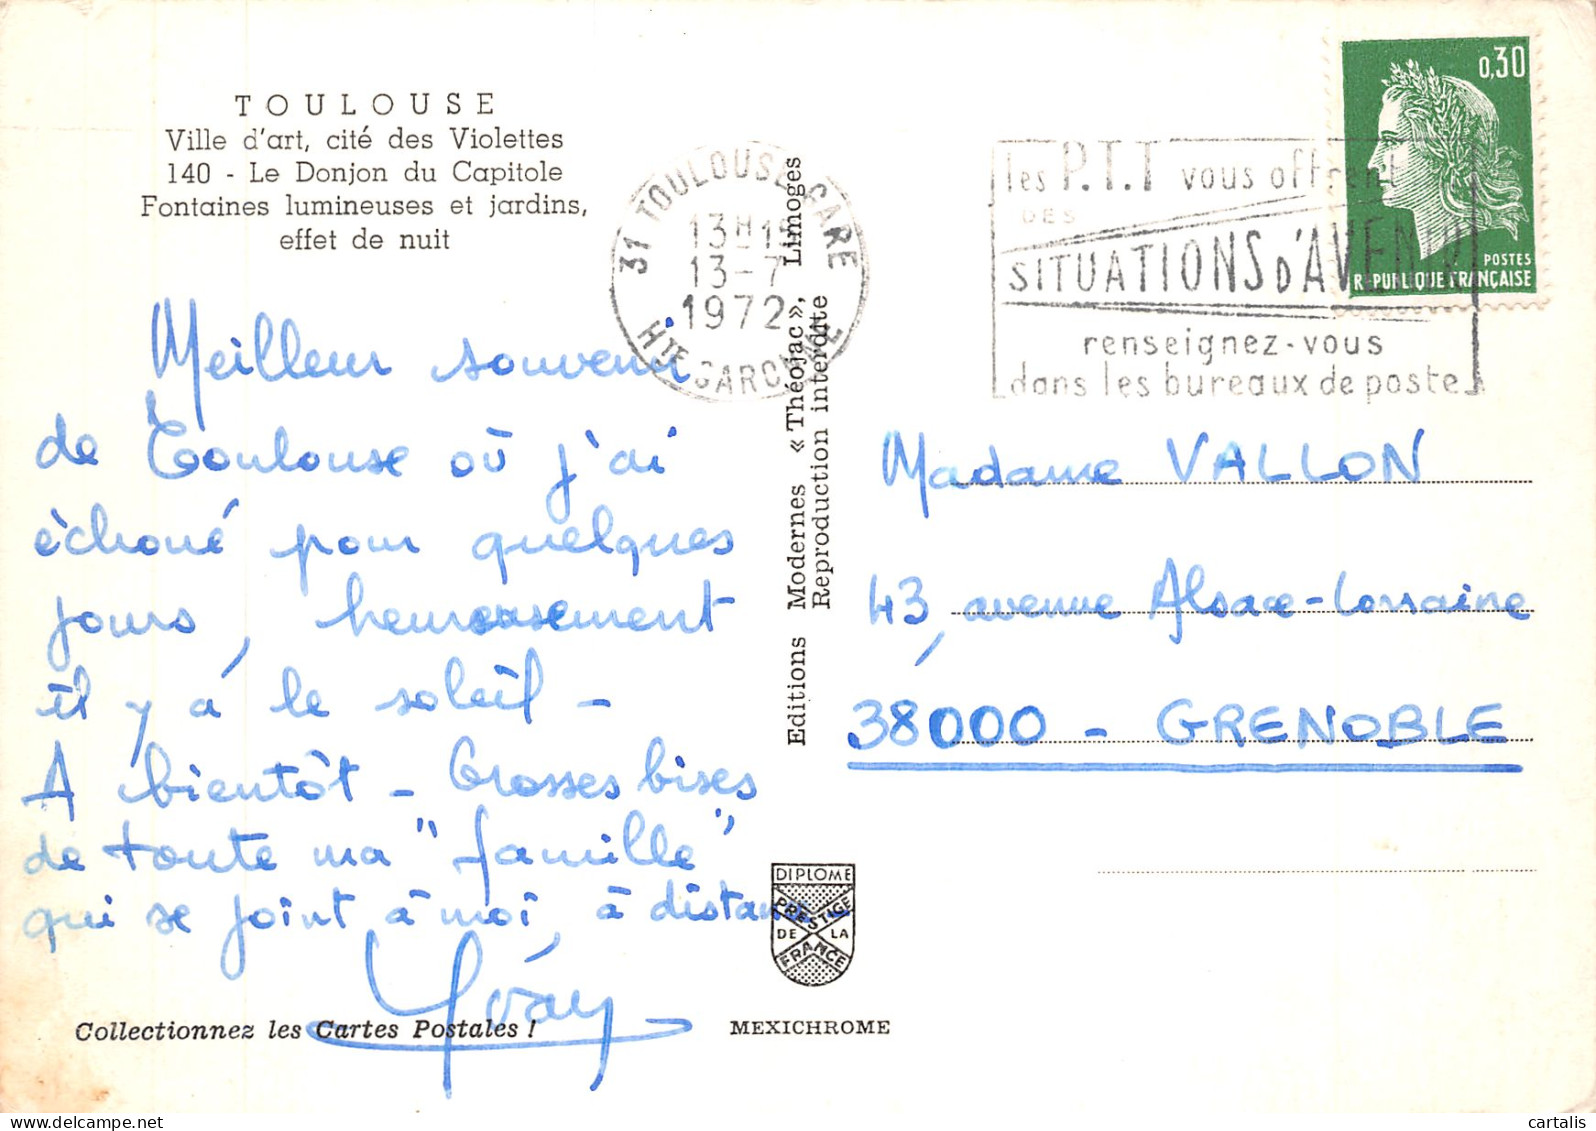 TOULOUSE
Ville d'art, cité des Violettes
140 - Le Donjon du Capitole
Fontaines lumineuses et jardins,
effet de nuit
31 TOULOUSE GARE
13H15
13-7
1972
HTE GARONNE
les P.T.T vous offrent
DES
SITUATIONS D'AVENIR
renseignez-vous
dans les bureaux de poste
0,30
POSTES
REPUBLIQUE FRANÇAISE
Meilleur souvenir
de Toulouse où j'ai
échoué pour quelques
jours, heureusement
il y a le soleil -
A bientôt - Grosses bises
de toute ma "famille"
qui se joint à moi, à distance
Editions Modernes « Théojac », Limoges
Reproduction interdite
Madame VALLON
43, avenue Alsace-Lorraine
38000 - GRENOBLE
DIPLOME
PRESTIGE
DE LA
FRANCE
Collectionnez les Cartes Postales !
MEXICHROME
delcampe.net
cartalis